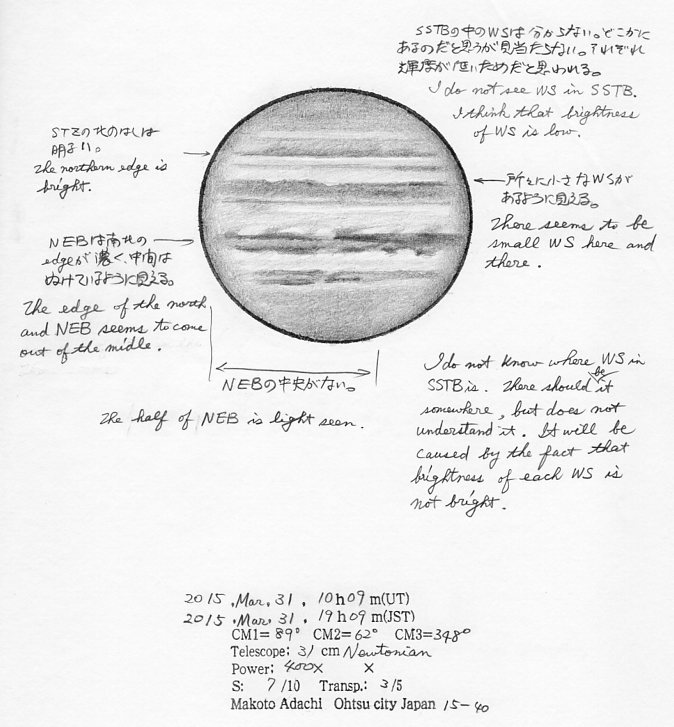 SSTBの中のWSは分からない。どこかに
あるのだと思うが見当たらない。それぞれ
輝度が低いためだと思われる。
I do not see WS in SSTB.
I think that brightness
of WS is low.
STZの北のはしは
明るい。
The northern edge is
bright.
所々に小さなWSが
あるように見える。
There seems to be
small WS here and
there.
NEBは南北の
edgeが濃く、中間は
ぬけているように見える。
The edge of the north
and NEB seems to come
out of the midle.
NEBの中央がない。
The half of NEB is light seen.
I do not know where WS in
SSTB is. There should be it
somewhere, but does not
understand it. It will be
caused by the fact that
brightness of each WS is
not bright.
2015, Mar, 31, 10h09m(UT)
2015, Mar, 31, 19h09m(JST)
CM1=89° CM2=62° CM3=348°
Telescope: 31 cm Newtonian
Power: 400X X
S: 7/10 Transp.: 3/5
Makoto Adachi Ohtsu city Japan 15-40